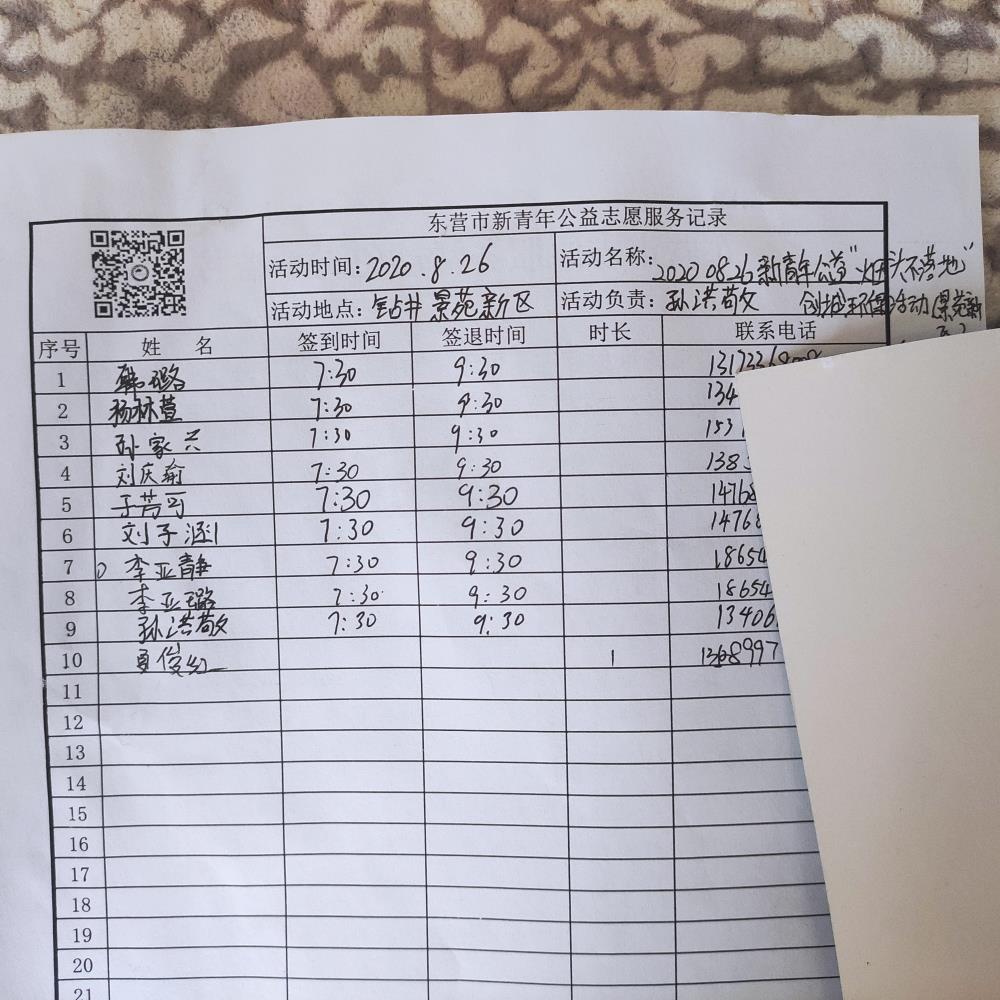 东营市新青年公益志愿服务记录
活动时间：2020.8.26 活动名称：2020 08.26 新青年公益“烟头不落地”
活动地点：钻井景苑新区 活动负责：孙洪敬 创城环保活动（景苑新
区）
序号 姓 名 签到时间 签退时间 时长 联系电话
1 韩璐 7:30 9:30
2 杨林萱 7:30 9:30 134
3 孙家兴 7:30 9:30 153
4 刘庆瑜 7:30 9:30 138
5 于芳可 7:30 9:30 14768
6 刘子涵 7:30 9:30 1476
7 李亚静 7:30 9:30 18654
8 李亚璐 7:30 9:30 18654
9 孙洪敬 7:30 9:30 13406
10 夏俊红 1
11
12
13
14
15
16
17
18
19
20
21